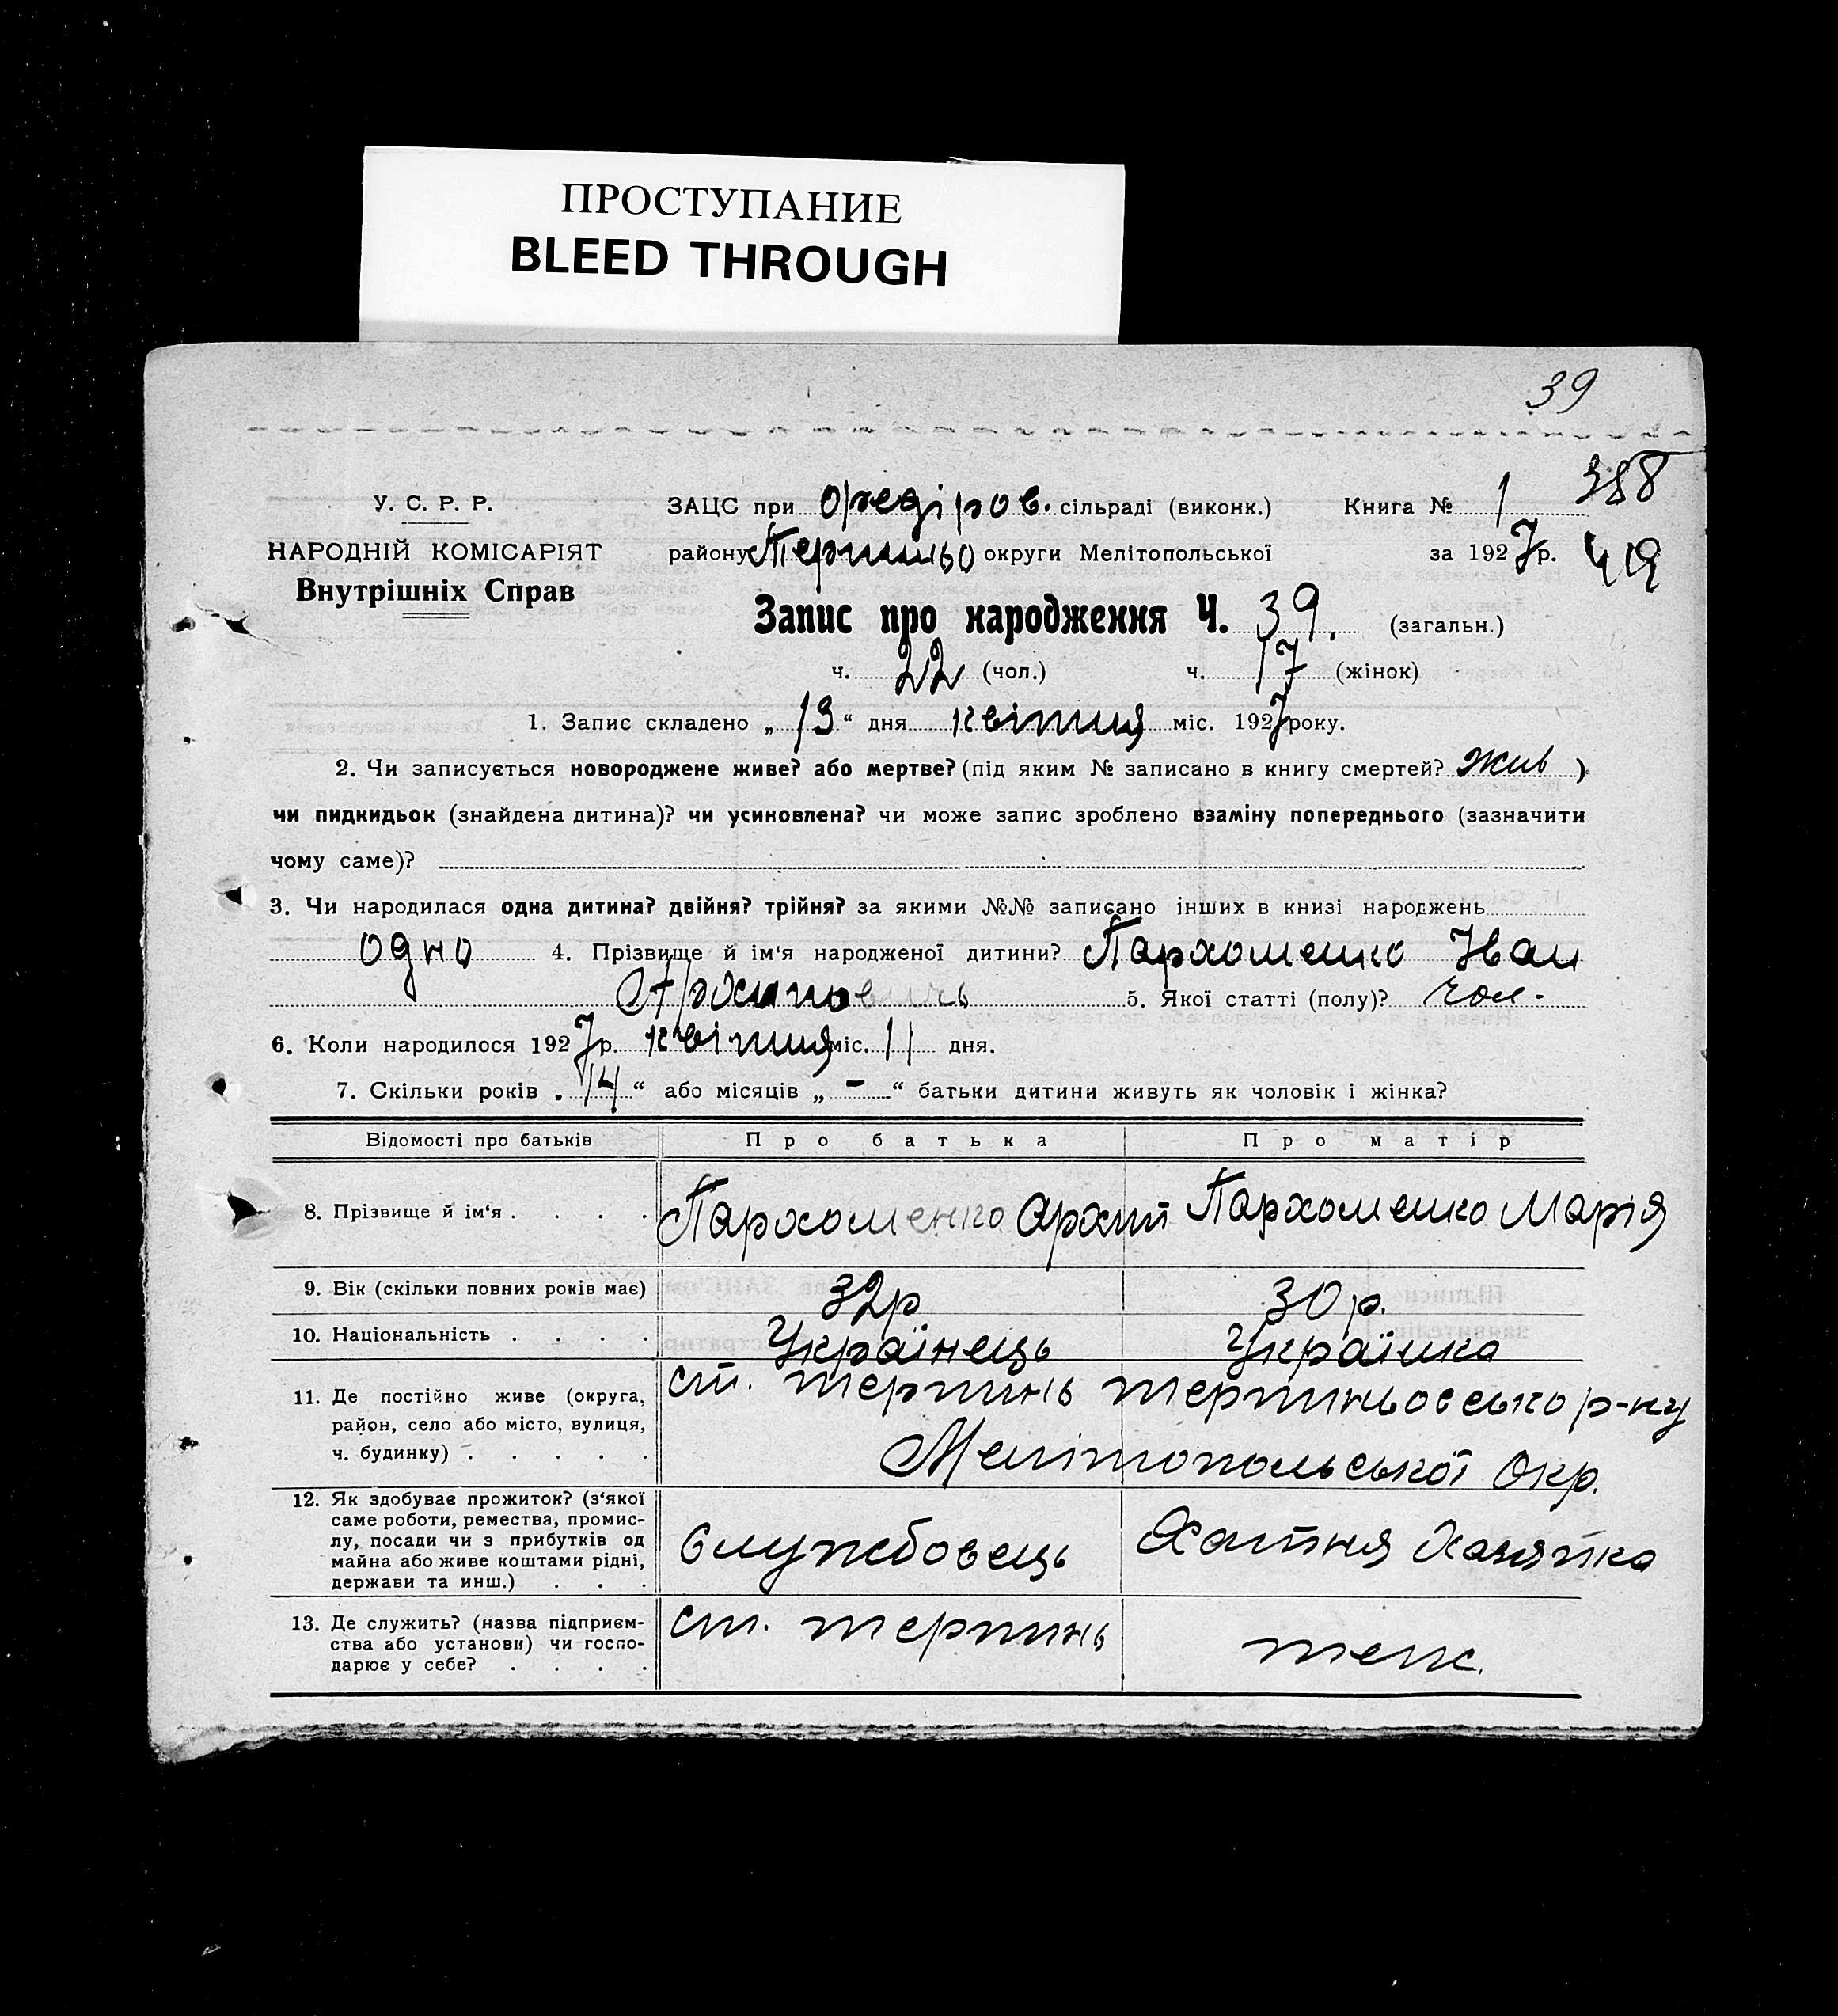 ПРОСТУПАНИЕ
BLEED THROUGH
39
У. С. Р. Р.
НАРОДНІЙ КОМІСАРІЯТ
Внутрішніх Справ
ЗАЦС при Федіров. сільраді (виконк.) Книга № 1 388
району Терпиньо округи Мелітопольської за 1927 р. 419
Запис про народження Ч. 39. (загальн.)
ч. 22 (чол.) ч. 17 (жінок)
1. Запис складено „ 13 “ дня квітня міс. 1927 року.
2. Чи записується новороджене живе? або мертве? (під яким № записано в книгу смертей? Жив )
чи пидкидьок (знайдена дитина)? чи усиновлена? чи може запис зроблено взаміну попереднього (зазначити
чому саме)?
3. Чи народилася одна дитина? двійня? трійня? за якими №№ записано інших в книзі народжень
одно 4. Прізвище й ім‘я народженої дитини? Пархоменко Іван
Архипович 5. Якої статті (полу)? чол.
6. Коли народилося 1927 р. квітня міс. 11 дня.
7. Скільки років „ 14 “ або місяців „ – “ батьки дитини живуть як чоловік і жінка?
Відомості про батьків Про батька Про матір
8. Прізвище й ім‘я . . . . Пархоменко Архип Пархоменко Марія
9. Вік (скільки повних років має) 32р 30 р.
10. Національність . . . . Українець Українка
11. Де постійно живе (округа, район, село або місто, вулиця, ч. будинку) . . . . . ст. Терпинь Терпиньовсько р-ну
Мелітопольської Окр.
12. Як здобуває прожиток? (з‘якої саме роботи, ремества, промислу, посади чи з прибутків од майна або живе коштами рідні, держави та инш.) . . . Службовець Хатня Хазяйка
13. Де служить? (назва підприємства або установи) чи господарює у себе? . . . . ст. Терпинь теж.